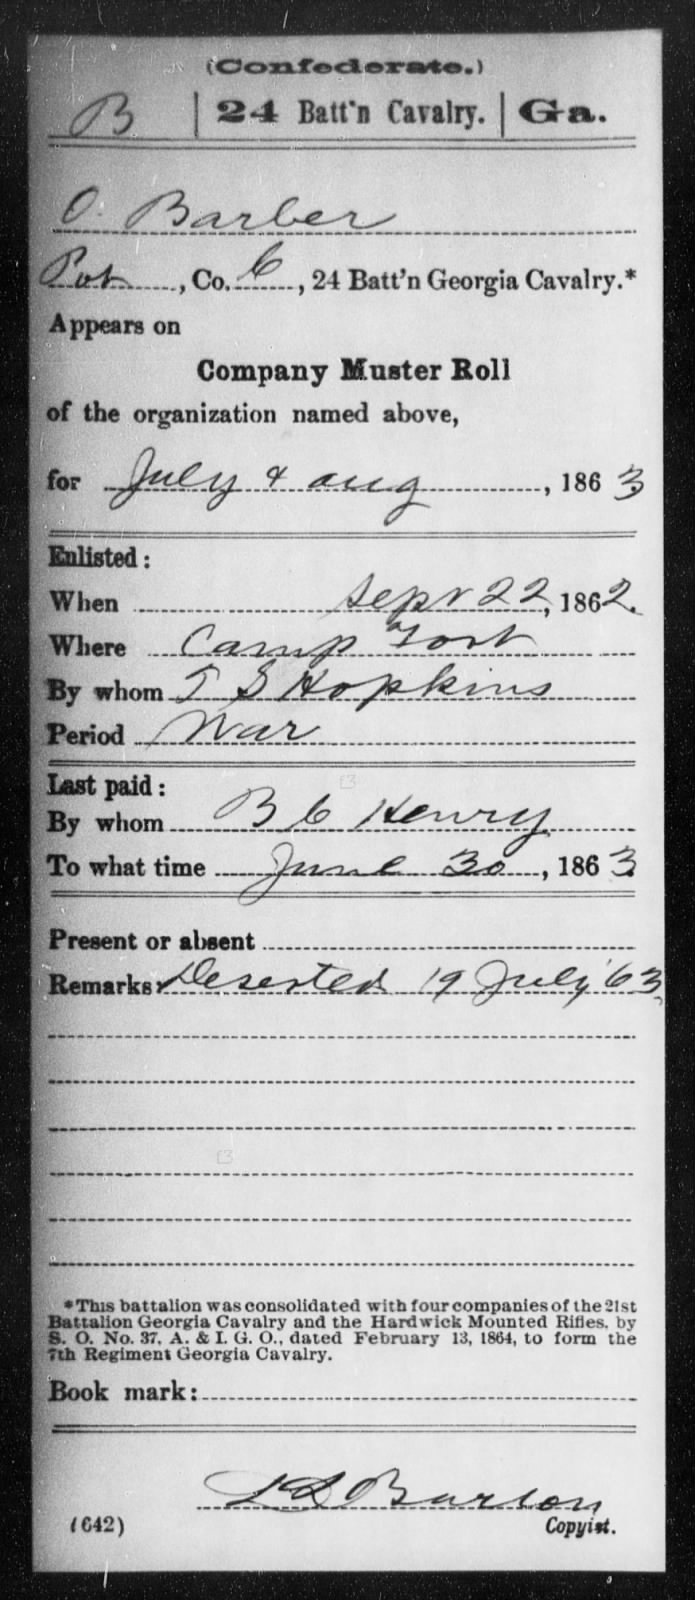 (Confederate.)
B | 24 Batt'n Cavalry. | Ga.
O. Barber
Pvt, Co. C, 24 Batt'n Georgia Cavalry.*
Appears on
Company Muster Roll
of the organization named above,
for July & Aug, 1863.
Enlisted:
When Sept 22, 1862.
Where Camp Fort
By whom T S Hopkins
Period War
Last paid:
By whom B C Henry
To what time June 30, 1863.
Present or absent
Remarks: Deserted 19 July '63.
*This battalion was consolidated with four companies of the 21st
Battalion Georgia Cavalry and the Hardwick Mounted Rifles, by
S. O. No. 37, A. & I. G. O., dated February 13, 1864, to form the
7th Regiment Georgia Cavalry.
Book mark:
L D Burlon
(642) Copyist.